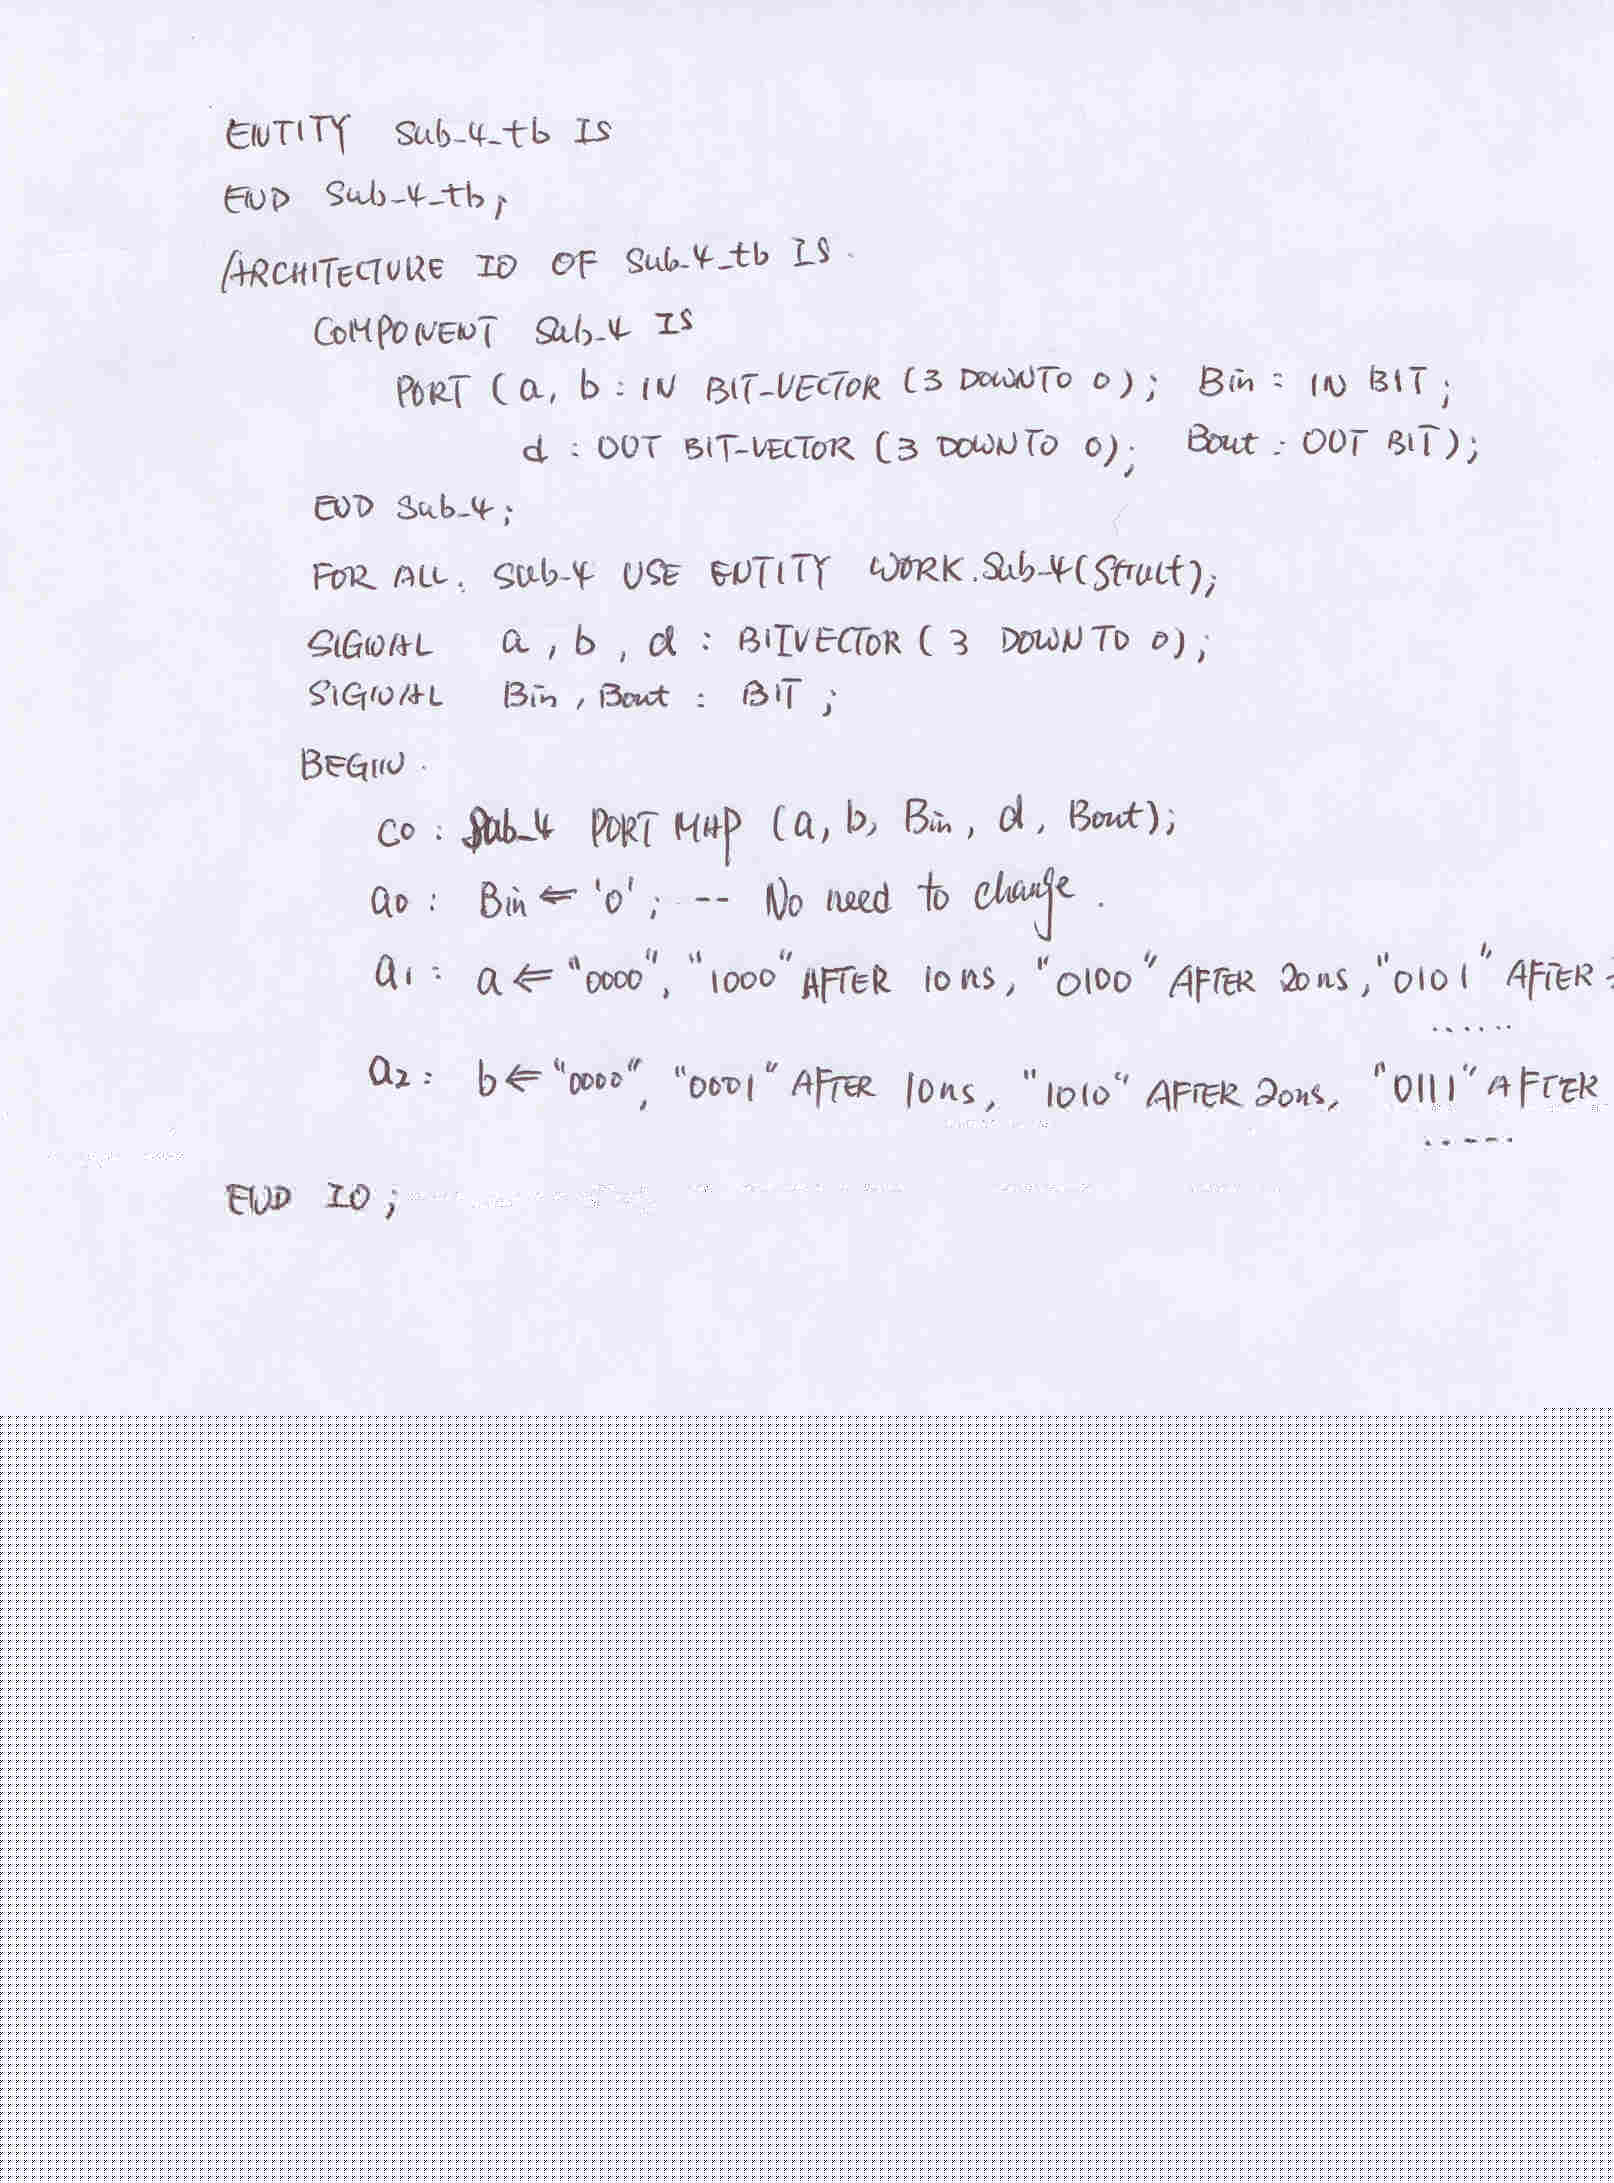 ENTITY Sub_4_tb IS
END Sub_4_tb;
ARCHITECTURE IO OF Sub_4_tb IS.
COMPONENT Sub_4 IS
PORT (a, b : IN BIT_VECTOR (3 DOWNTO 0); Bin : IN BIT;
d : OUT BIT_VECTOR (3 DOWNTO 0); Bout : OUT BIT);
END Sub_4;
FOR ALL: Sub_4 USE ENTITY WORK.Sub_4(Struct);
SIGNAL a, b, d : BITVECTOR (3 DOWNTO 0);
SIGNAL Bin, Bout : BIT;
BEGIN.
c0 : Sub_4 PORT MAP (a, b, Bin, d, Bout);
a0 : Bin <= '0'; -- No need to change.
a1 : a <= "0000", "1000" AFTER 10 ns, "0100" AFTER 20 ns, "0101" AFTER
......
a2 : b <= "0000", "0001" AFTER 10 ns, "1010" AFTER 20 ns, "0111" AFTER
......
END IO;